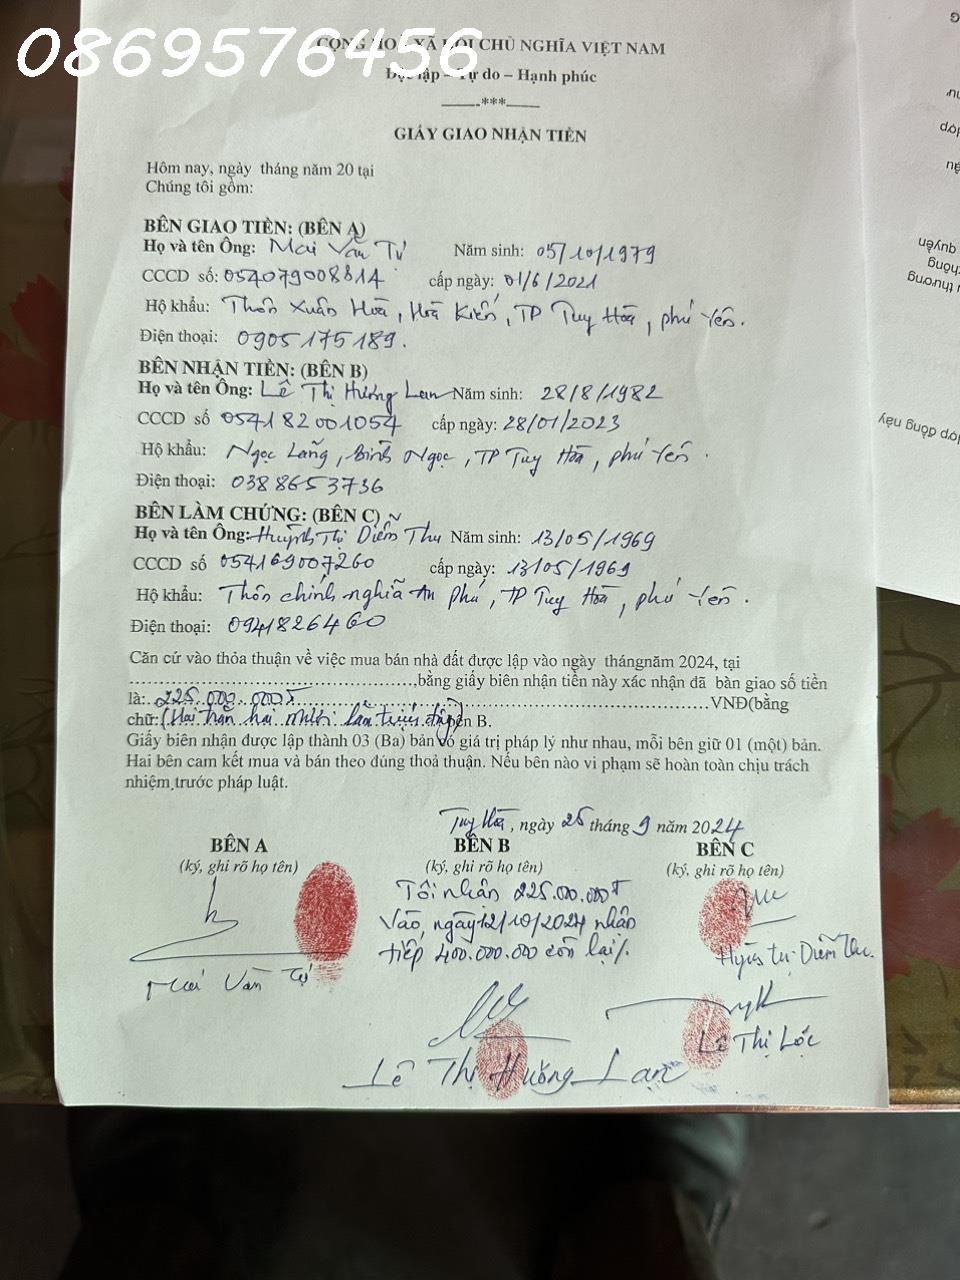 0869576456
CỘNG HOÀ XÃ HỘI CHỦ NGHĨA VIỆT NAM
Độc lập – Tự do – Hạnh phúc
———.***———
GIẤY GIAO NHẬN TIỀN
Hôm nay, ngày tháng năm 20 tại
Chúng tôi gồm:
BÊN GIAO TIỀN: (BÊN A)
Họ và tên Ông: Mai Văn Tự Năm sinh: 05/10/1979
CCCD số: 054079008814 cấp ngày: 01/6/2021
Hộ khẩu: Thôn Xuân Hoà, Hoà Kiến, TP Tuy Hoà, phú Yên.
Điện thoại: 0905175189.
BÊN NHẬN TIỀN: (BÊN B)
Họ và tên Ông: Lê Thị Hương Lan Năm sinh: 28/8/1982
CCCD số 054182001054 cấp ngày: 28/01/2023
Hộ khẩu: Ngọc Lãng, Bình Ngọc, TP Tuy Hoà, phú Yên.
Điện thoại: 0388653736
BÊN LÀM CHỨNG: (BÊN C)
Họ và tên Ông: Huỳnh Thị Diễm Thu Năm sinh: 13/05/1969
CCCD số 054169007260 cấp ngày: 13/05/1969
Hộ khẩu: Thôn chính nghĩa An Phú, TP Tuy Hoà, phú Yên.
Điện thoại: 0941826460
Căn cứ vào thỏa thuận về việc mua bán nhà đất được lập vào ngày thángnăm 2024, tại
……………………………………,bằng giấy biên nhận tiền này xác nhận đã bàn giao số tiền
là: 225.000.000đ……………………………………VNĐ(bằng
chữ: (Hai trăm hai mươi lăm triệu đồng) B.
Giấy biên nhận được lập thành 03 (Ba) bản có giá trị pháp lý như nhau, mỗi bên giữ 01 (một) bản.
Hai bên cam kết mua và bán theo đúng thoả thuận. Nếu bên nào vi phạm sẽ hoàn toàn chịu trách
nhiệm trước pháp luật.
Tuy Hoà, ngày 25 tháng 9 năm 2024
BÊN A BÊN B BÊN C
(ký, ghi rõ họ tên) (ký, ghi rõ họ tên) (ký, ghi rõ họ tên)
Tôi nhận 225.000.000đ
Vào, ngày 12/10/2024 nhận
tiếp 400.000.000 còn lại/.
Mai Văn Tự
Huỳnh Thị Diễm Thu.
Lê Thị Lộc
Lê Thị Hương Lan
quyền
thương
hợp đồng này